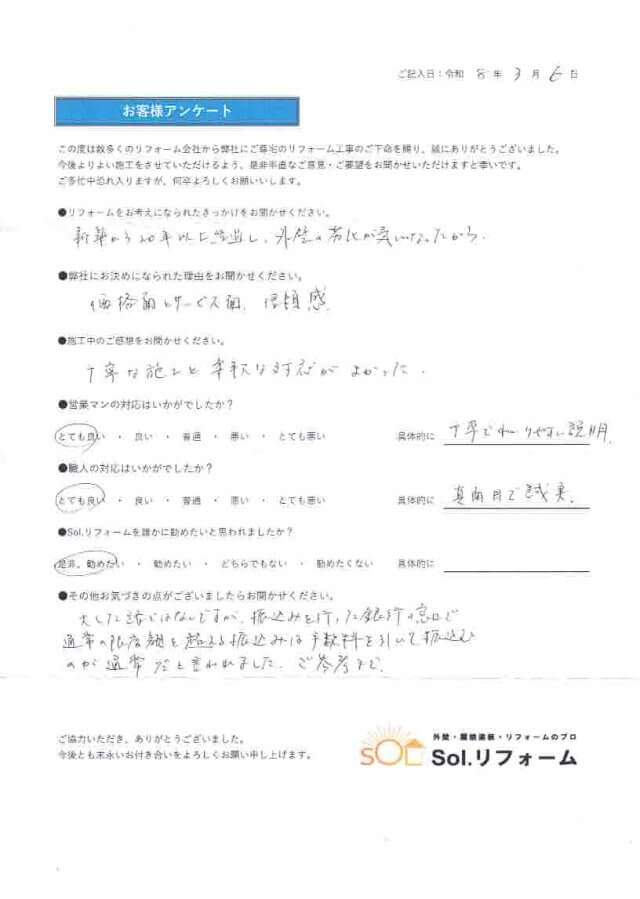 ご記入日：令和 8 年 3 月 6 日
お客様アンケート
この度は数多くのリフォーム会社から弊社にご尊宅のリフォーム工事のご下命を賜り、誠にありがとうございました。
今後よりよい施工をさせていただけるよう、是非率直なご意見・ご要望をお聞かせいただけますと幸いです。
ご多忙中恐れ入りますが、何卒よろしくお願いいします。
●リフォームをお考えになられたきっかけをお聞かせください。
新築から20年以上経過し、外壁の劣化が気になったから.
●弊社にお決めになられた理由をお聞かせください。
価格面とサービス面、信頼感.
●施工中のご感想をお聞かせください。
丁寧な施工と 柔軟な対応が よかった.
●営業マンの対応はいかがでしたか？
とても良い ・ 良い ・ 普通 ・ 悪い ・ とても悪い 具体的に 丁寧でわかりやすい説明.
●職人の対応はいかがでしたか？
とても良い ・ 良い ・ 普通 ・ 悪い ・ とても悪い 具体的に 真面目で誠実.
●Sol.リフォームを誰かに勧めたいと思われましたか？
是非、勧めたい ・ 勧めたい ・ どちらでもない ・ 勧めたくない 具体的に
●その他お気づきの点がございましたらお聞かせください。
大した話ではないですが、振込みを行った銀行の窓口で
通常の限度額を超える振込みは手数料を引いて振込む
のが通常だと言われました. ご参考まで.
ご協力いただき、ありがとうございました。
今後とも末永いお付き合いをよろしくお願い申し上げます。
外壁・屋根塗装・リフォームのプロ
SOL Sol.リフォーム